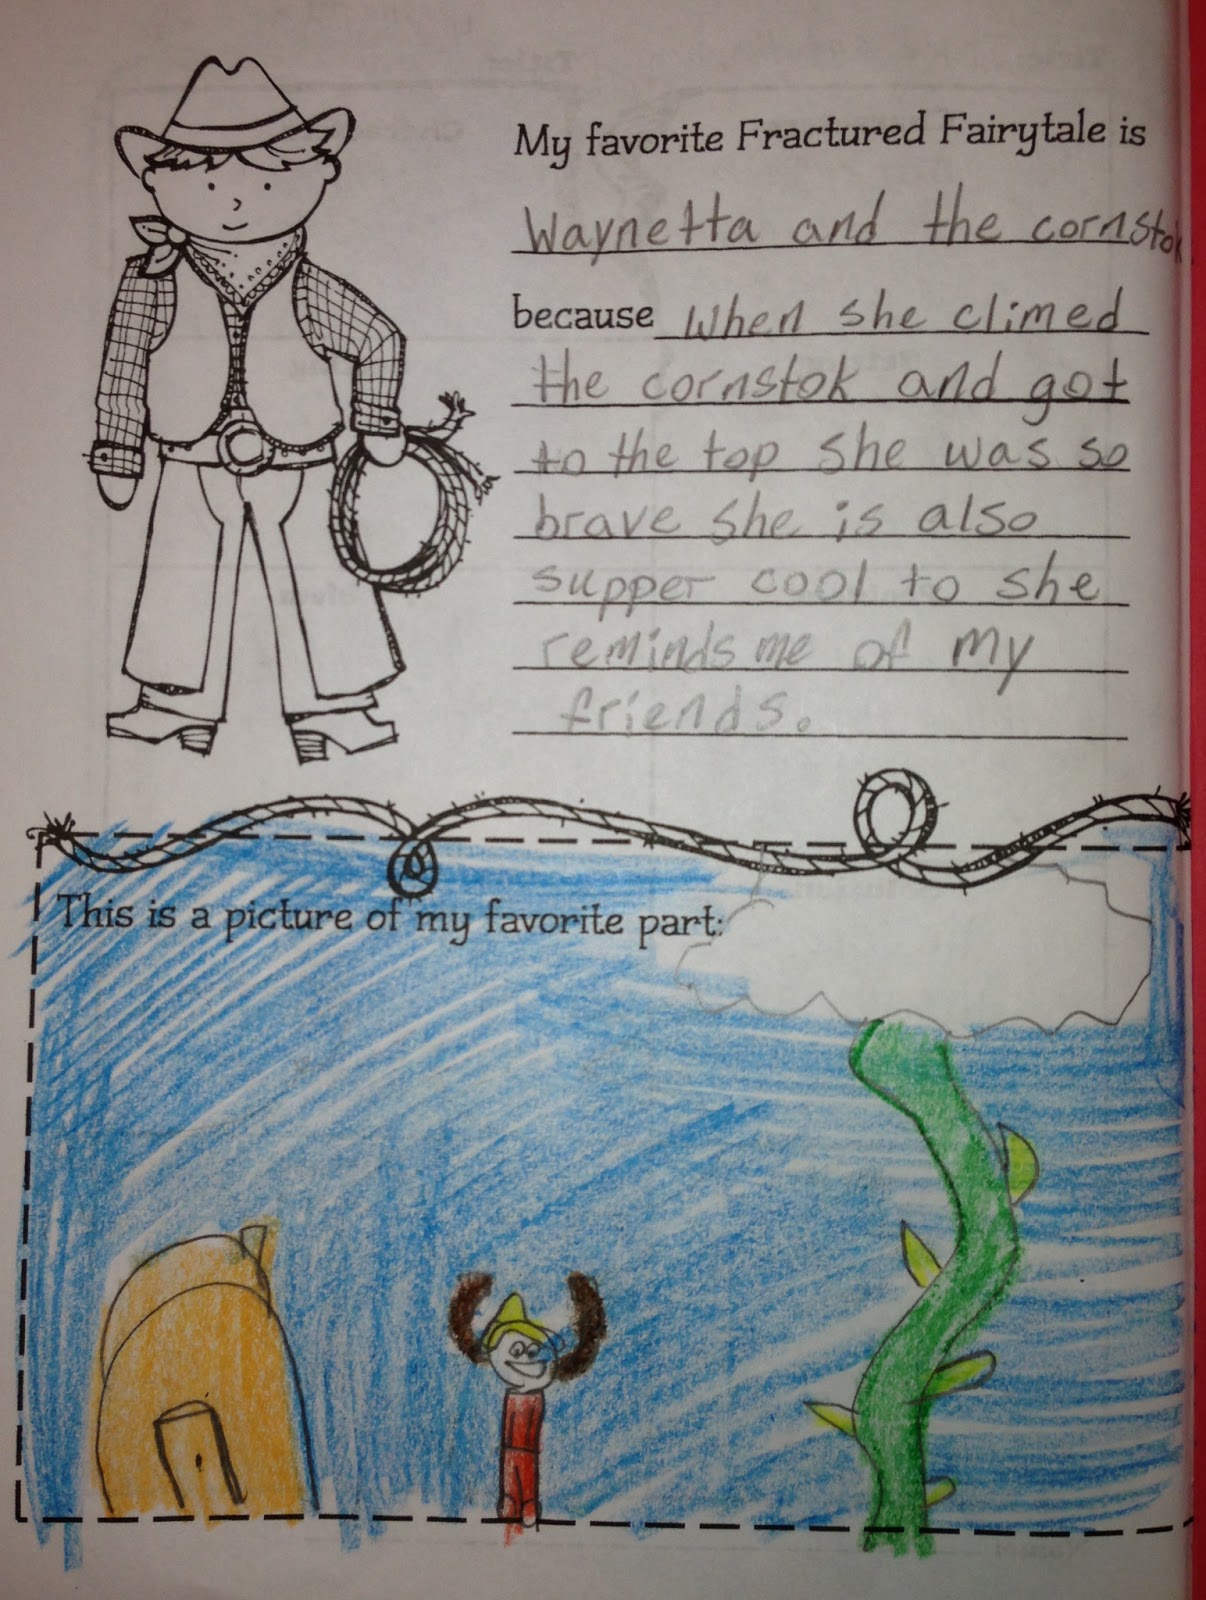 My favorite Fractured Fairytale is
Waynetta and the cornstok
because when she climed
the cornstok and got
to the top she was so
brave she is also
supper cool to she
reminds me of my
friends.
This is a picture of my favorite part: